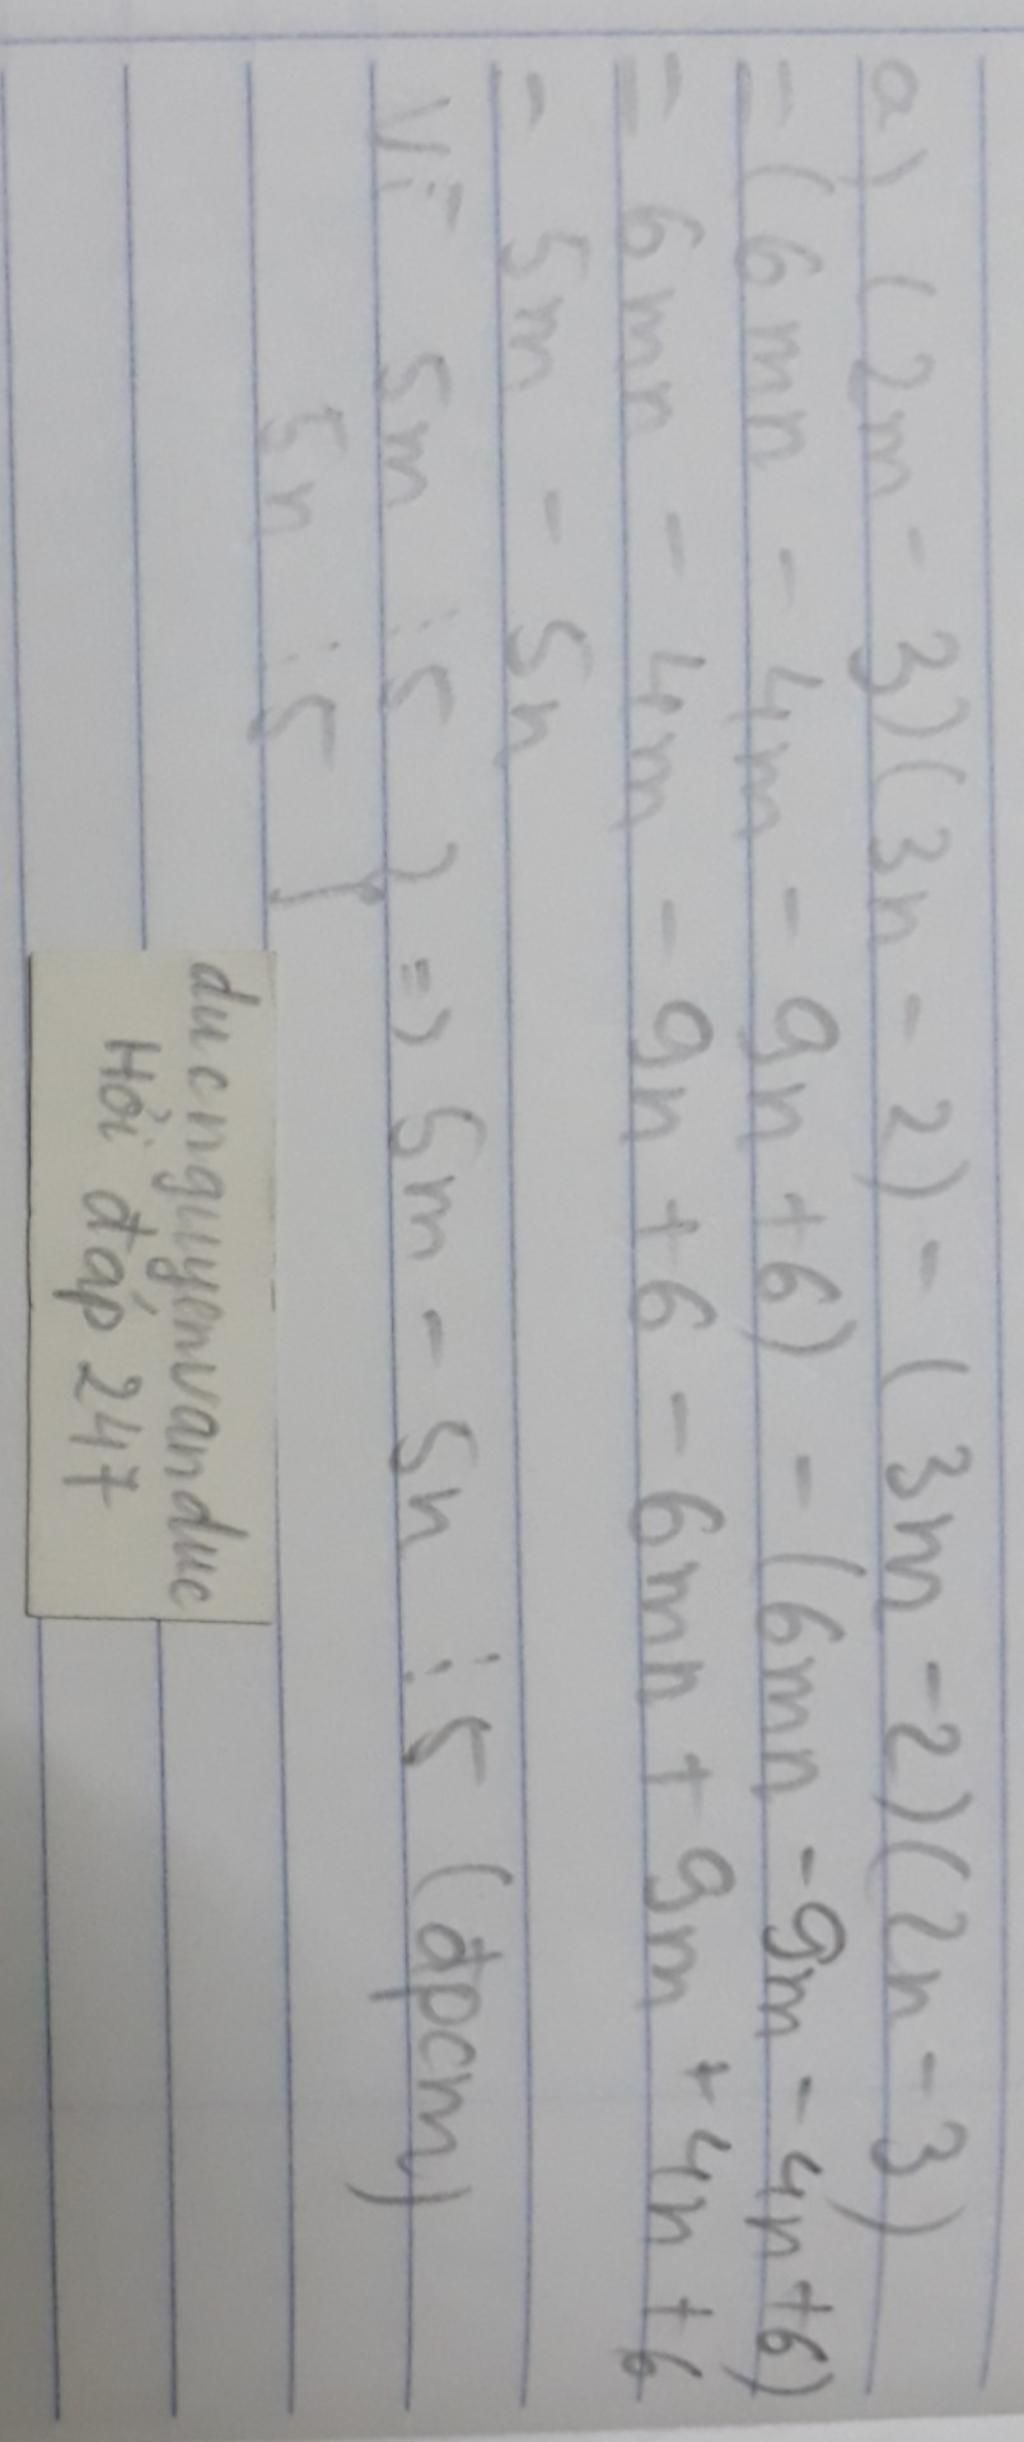 a) (2m - 3)(3n - 2) - (3m - 2)(2n - 3)
= (6mn - 4m - 9n + 6) - (6mn - 9m - 4n + 6)
= 6mn - 4m - 9n + 6 - 6mn + 9m + 4n + 6
= 5m - 5n
Vì 5m ⋮ 5 } => 5m - 5n ⋮ 5 (đpcm)
5n ⋮ 5
ducnguyenvanduc
Hỏi đáp 247